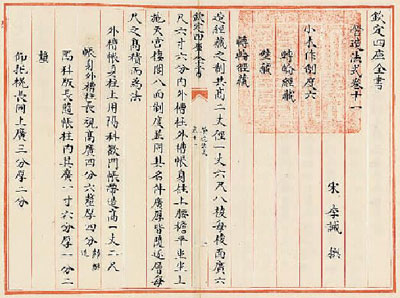 欽定四庫全書
營造法式卷十一
宋 李誡 撰
小木作制度六
轉輪經藏
壁藏
轉輪經藏
造經藏之制共高二丈徑一丈六尺八棱每棱面廣六
欽定四庫全書
營造法式
卷十一
尺六寸六分內外槽柱外槽帳身柱上腰檐平坐坐上
施天宫樓閣八面制度並同其名件廣厚皆隨逐層每
尺之高積而為法
外槽帳身柱上用隔科歡門帳帶造高一丈二尺
帳身外槽柱長視高廣四分六釐厚四分歸瓣造
隔科版長隨帳柱內其廣一寸六分厚一分二
釐
仰托榥長同上廣三分厚二分